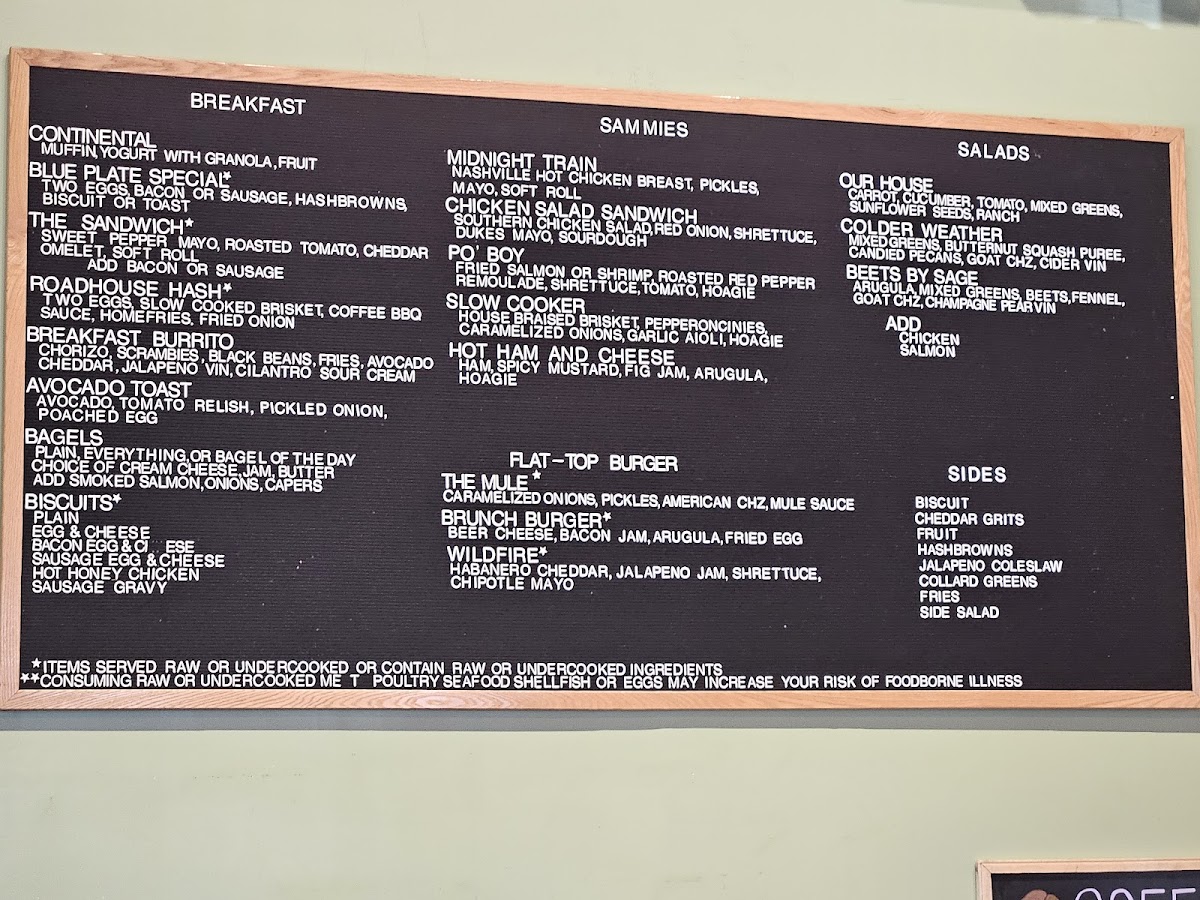 BREAKFAST
CONTINENTAL
MUFFIN, YOGURT WITH GRANOLA, FRUIT
BLUE PLATE SPECIAL*
TWO EGGS, BACON OR SAUSAGE, HASHBROWNS,
BISCUIT OR TOAST
THE SANDWICH*
SWEET PEPPER MAYO, ROASTED TOMATO, CHEDDAR
OMELET, SOFT ROLL
ADD BACON OR SAUSAGE
ROADHOUSE HASH*
TWO EGGS, SLOW COOKED BRISKET, COFFEE BBQ
SAUCE, HOMEFRIES, FRIED ONION
BREAKFAST BURRITO
CHORIZO, SCRAMBIES, BLACK BEANS, FRIES, AVOCADO
CHEDDAR, JALAPENO VIN, CILANTRO SOUR CREAM
AVOCADO TOAST
AVOCADO, TOMATO RELISH, PICKLED ONION,
POACHED EGG
BAGELS
PLAIN, EVERYTHING, OR BAGEL OF THE DAY
CHOICE OF CREAM CHEESE, JAM, BUTTER
ADD SMOKED SALMON, ONIONS, CAPERS
BISCUITS*
PLAIN
EGG & CHEESE
BACON EGG & C ESE
SAUSAGE EGG & CHEESE
HOT HONEY CHICKEN
SAUSAGE GRAVY
SAMMIES
MIDNIGHT TRAIN
NASHVILLE HOT CHICKEN BREAST, PICKLES,
MAYO, SOFT ROLL
CHICKEN SALAD SANDWICH
SOUTHERN CHICKEN SALAD, RED ONION, SHRETTUCE,
DUKES MAYO, SOURDOUGH
PO' BOY
FRIED SALMON OR SHRIMP, ROASTED RED PEPPER
REMOULADE, SHRETTUCE, TOMATO, HOAGIE
SLOW COOKER
HOUSE BRAISED BRISKET, PEPPERONCINIES,
CARAMELIZED ONIONS, GARLIC AIOLI, HOAGIE
HOT HAM AND CHEESE
HAM, SPICY MUSTARD, FIG JAM, ARUGULA,
HOAGIE
FLAT-TOP BURGER
THE MULE*
CARAMELIZED ONIONS, PICKLES, AMERICAN CHZ, MULE SAUCE
BRUNCH BURGER*
BEER CHEESE, BACON JAM, ARUGULA, FRIED EGG
WILDFIRE*
HABANERO CHEDDAR, JALAPENO JAM, SHRETTUCE,
CHIPOTLE MAYO
SALADS
OUR HOUSE
CARROT, CUCUMBER, TOMATO, MIXED GREENS,
SUNFLOWER SEEDS, RANCH
COLDER WEATHER
MIXED GREENS, BUTTERNUT SQUASH PUREE,
CANDIED PECANS, GOAT CHZ, CIDER VIN
BEETS BY SAGE
ARUGULA, MIXED GREENS, BEETS, FENNEL,
GOAT CHZ, CHAMPAGNE PEAR VIN
ADD
CHICKEN
SALMON
SIDES
BISCUIT
CHEDDAR GRITS
FRUIT
HASHBROWNS
JALAPENO COLESLAW
COLLARD GREENS
FRIES
SIDE SALAD
*ITEMS SERVED RAW OR UNDERCOOKED OR CONTAIN RAW OR UNDERCOOKED INGREDIENTS
**CONSUMING RAW OR UNDERCOOKED ME T POULTRY SEAFOOD SHELLFISH OR EGGS MAY INCREASE YOUR RISK OF FOODBORNE ILLNESS